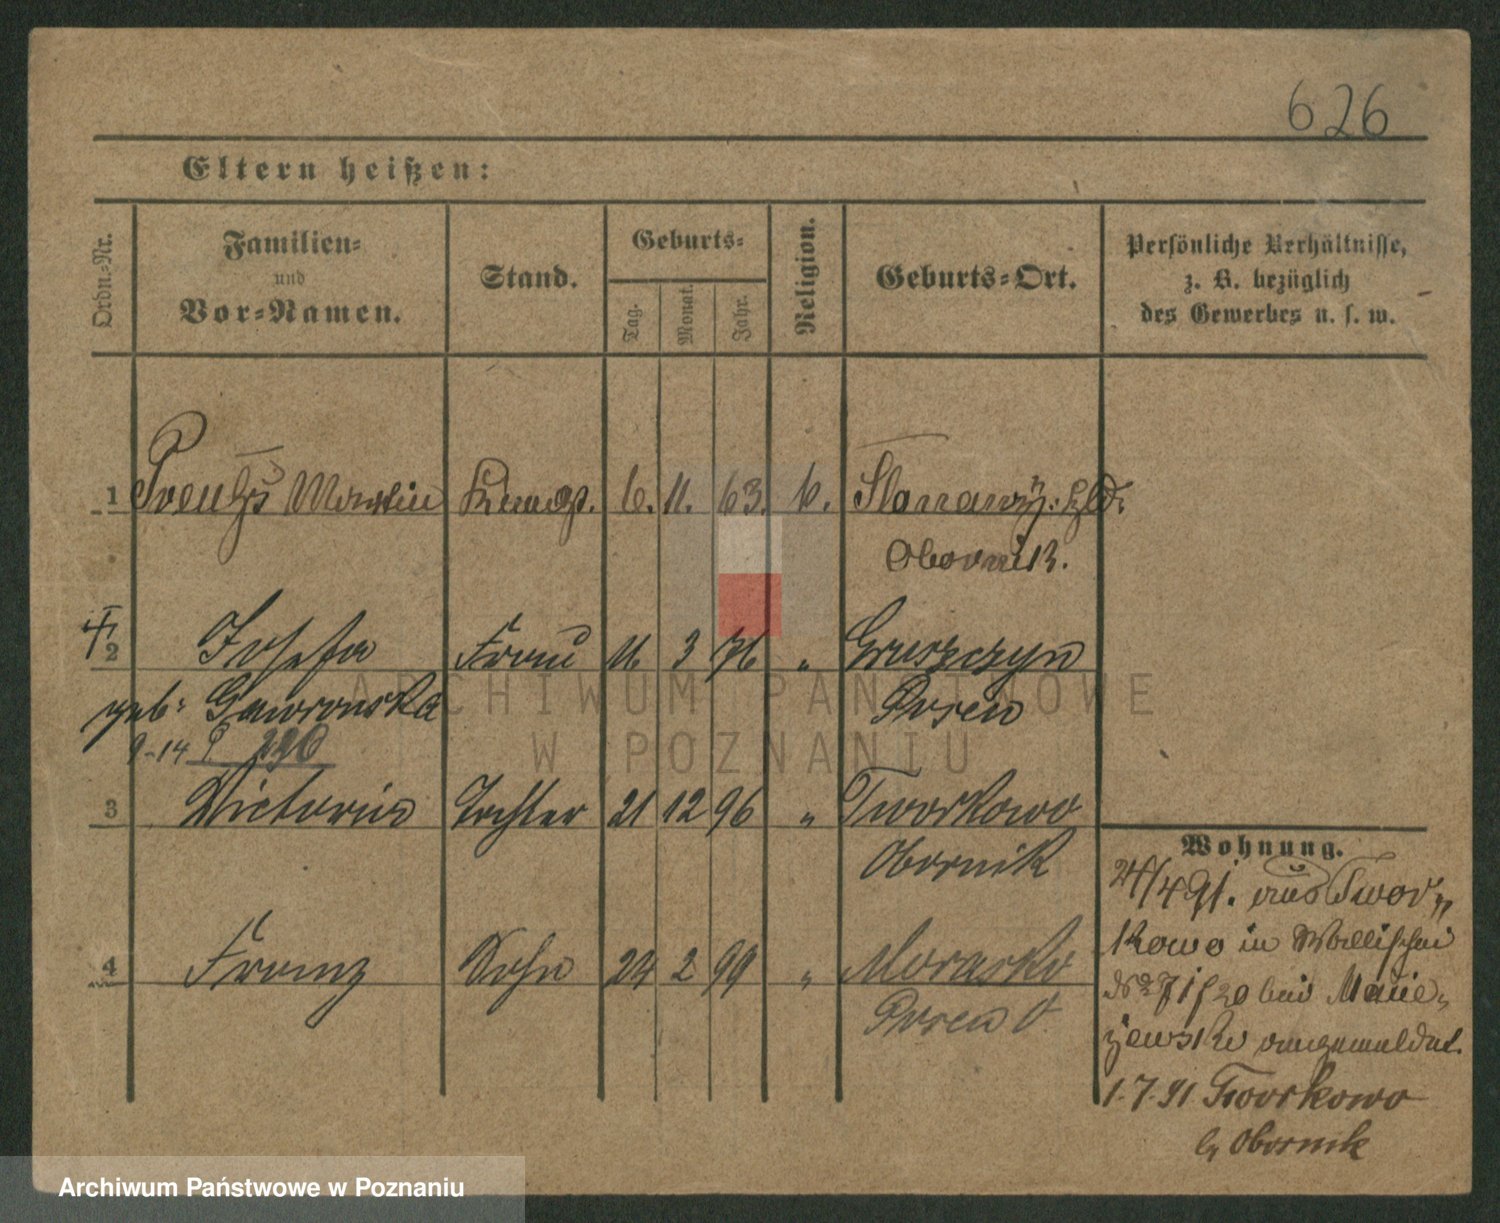 626
Eltern heißen:
Ordn.-Nr.
Familien-
und
Vor-Namen.
Stand.
Geburts-
Tag.
Monat.
Jahr.
Religion.
Geburts-Ort.
Persönliche Verhältnisse,
z. B. bezüglich
des Gewerbes u. s. w.
1 Martin 6. 11. 63. k.
Obornik.
2 Josefa Frau 11. 3 76 " Gruszczyn
geb: Gaworonska Posen
9-14 296
3 Victoria Tochter 21 12 96 " Tworkowo
Obornik
4 Franz Sohn 24 2 99 " Morasko
Posen O
Wohnung.
24/4 91. aus Twor„
kowo in Wallischei
No 71 f 20 bei
angemeldet.
1.7.91 Tworkowo
b/ Obornik
ARCHIWUM PAŃSTWOWE
W POZNANIU
Archiwum Państwowe w Poznaniu